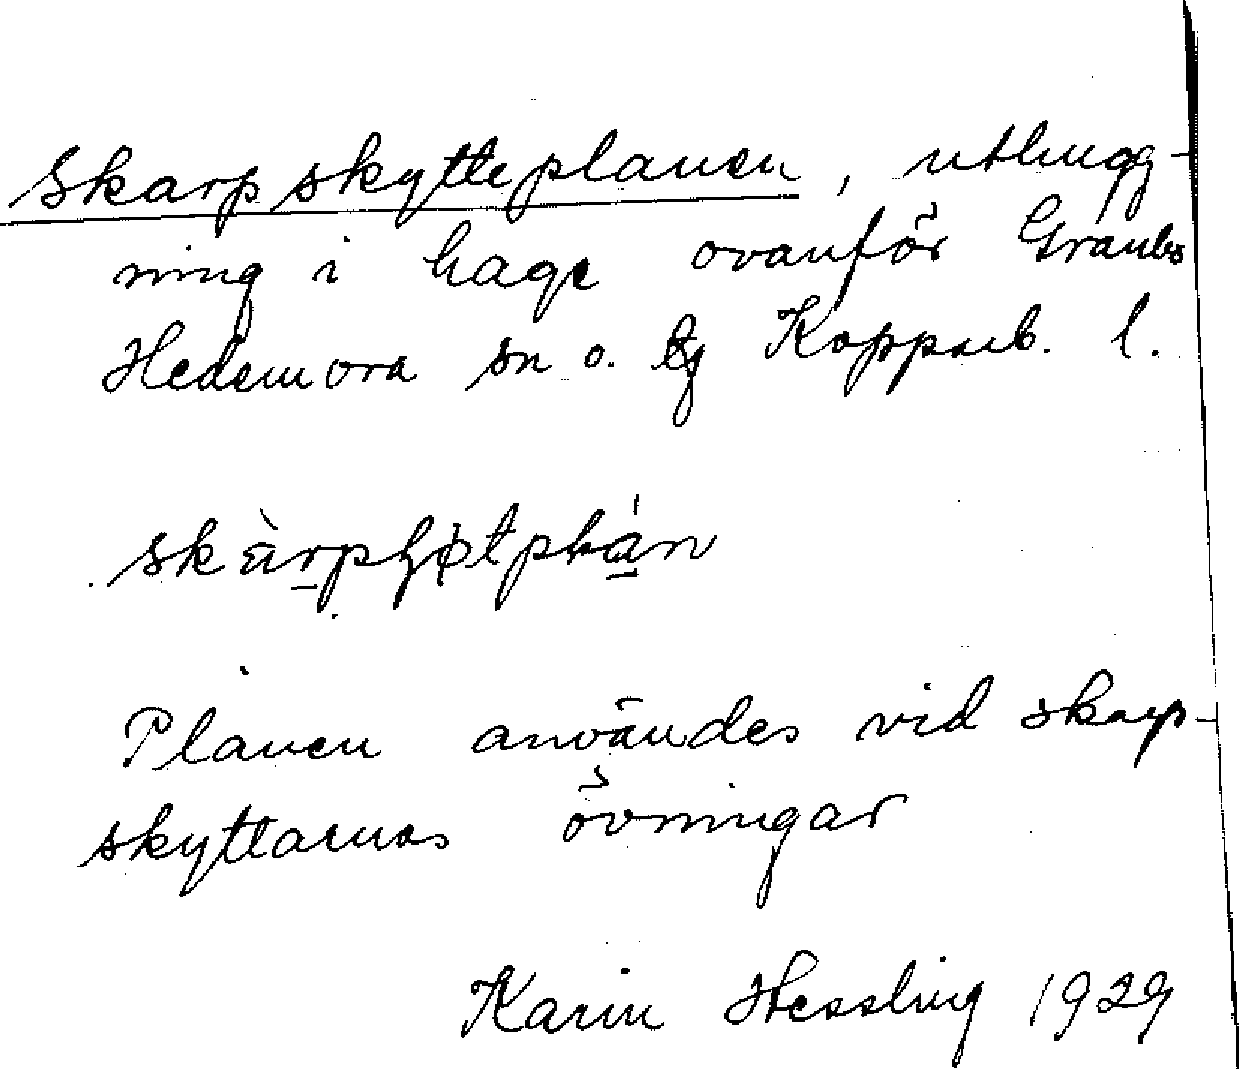 Skarpskytteplanen, uthugg-
ning i hage ovanför Granbs
Hedemora sn o. tg Kopparb. l.
Planen användes vid skarp-
skyttarnas övningar
Karin Hessling 1929